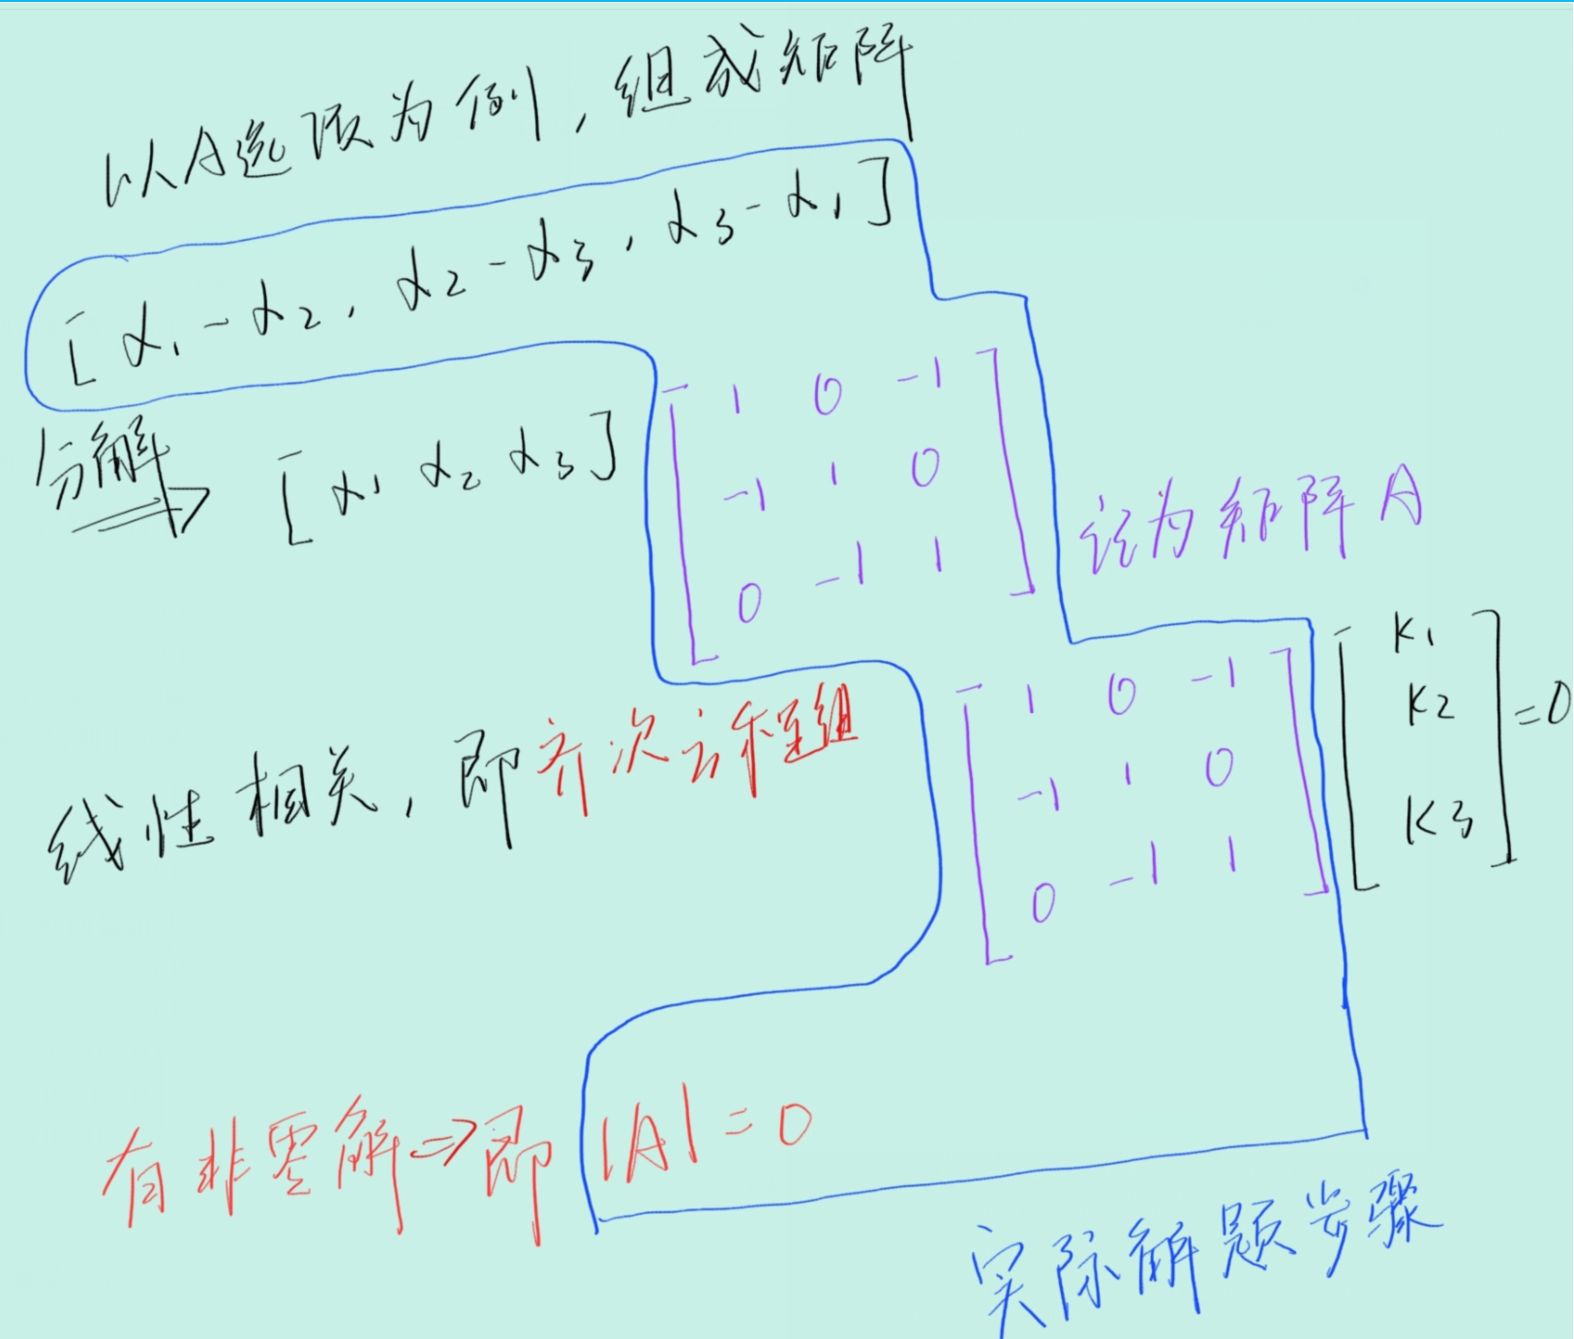 以A选项为例,组成矩阵
[α1-α2, α2-α3, α3-α1]
分解 ⇒ [α1 α2 α3] [1 0 -1
-1 1 0
0 -1 1] 记为矩阵A
线性相关,即齐次方程组 [1 0 -1
-1 1 0
0 -1 1] [K1
K2
K3] =0
有非零解⇒即 |A|=0
实际解题步骤